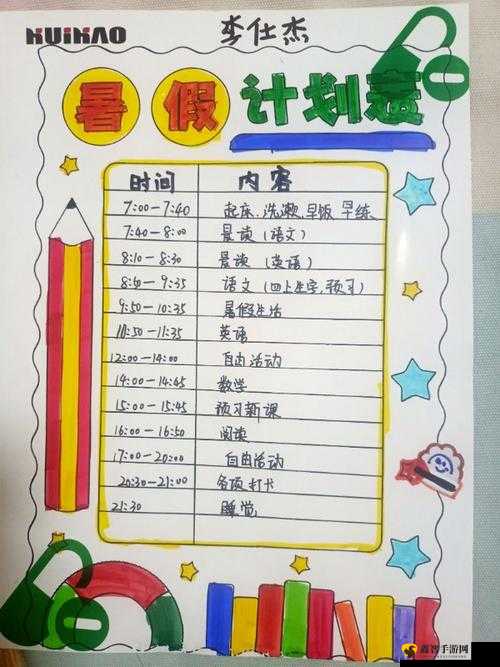 HUIHAO
李仕杰
暑假计划表
时间 内容
7:00-7:40 起床、洗漱、早饭 早练
7:40-8:00 晨读(语文)
8:10-8:30 晨读(英语)
8:50-9:35 语文(四上生字、预习)
9:50-10:35 暑假生活
10:50-11:35 英语
12:00-14:00 自由活动
14:00-14:45 数学
15:00-15:45 预习新课
16:00-16:50 阅读
17:00-20:00 自由活动
20:30-21:00 各项打卡
21:30 睡觉
鑫智手游网